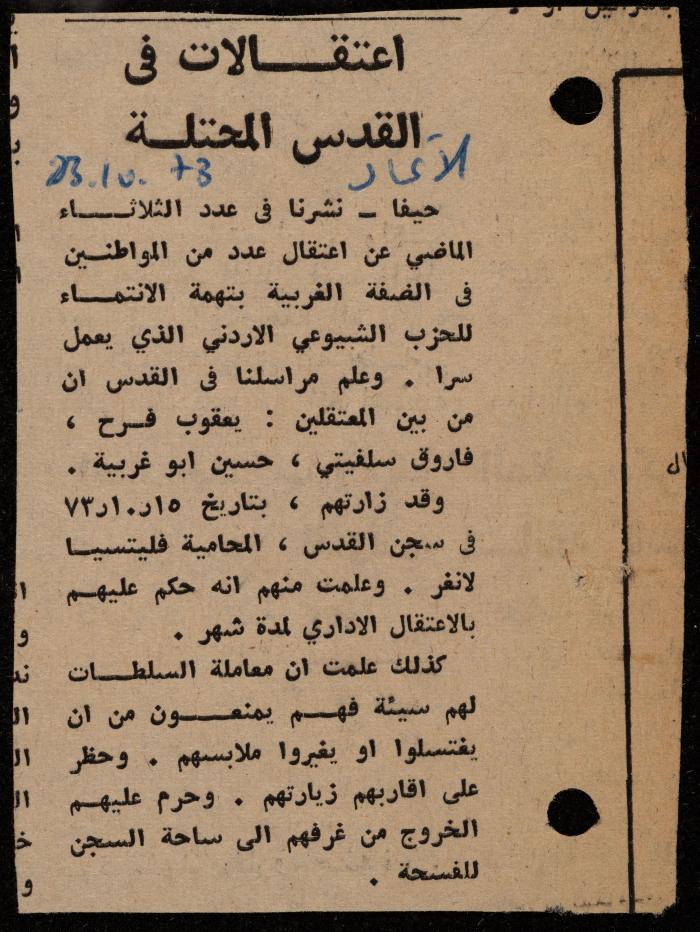 اعتقـــالات فى
القدس المحتلـــة
23.10.73 الاتحاد
حيفا ــ نشرنا فى عدد الثلاثــــاء
الماضي عن اعتقال عدد من المواطنــين
فى الضفة الغربية بتهمة الانتمــاء
للحزب الشيوعي الاردني الذي يعمل
سرا . وعلم مراسلنا فى القدس ان
من بين المعتقلين : يعقوب فــرح ،
فاروق سلفيتي ، حسين ابو غربية .
وقد زارتهم ، بتاريخ ١٥ر١٠ر٧٣
فى سجن القدس ، المحامية فليتسيــا
لانغر . وعلمت منهم انه حكم عليهــم
بالاعتقال الاداري لمدة شهر .
كذلك علمت ان معاملة السلطــات
لهم سيئة فهــم يمنعــــون من ان
يغتسلوا او يغيروا ملابسهم . وحظر
على اقاربهم زيارتهم . وحرم عليهــم
الخروج من غرفهم الى ساحة السجن
للفسحة .